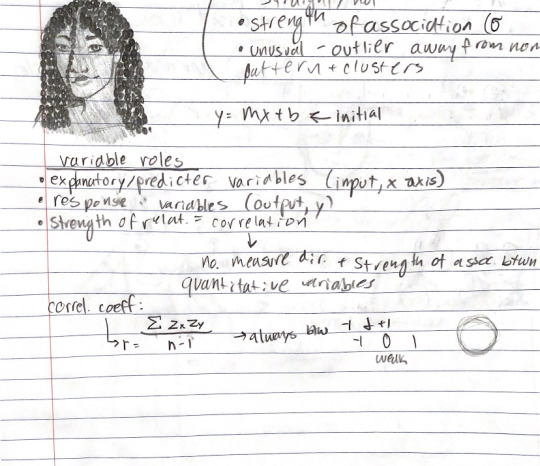 • strength of association (σ
• unusual - outlier away from non
pattern + clusters
y = mx + b ← initial
variable roles
• explanatory/predicter variables (input, x axis)
• response variables (output, y)
• strength of relat. = correlation
↓
no. measure dir. + strength of assoc. btwn
quantitative variables
correl. coeff:
↳ r = Σ ZxZy / n-1 → always btw -1 & +1
-1 0 1
weak